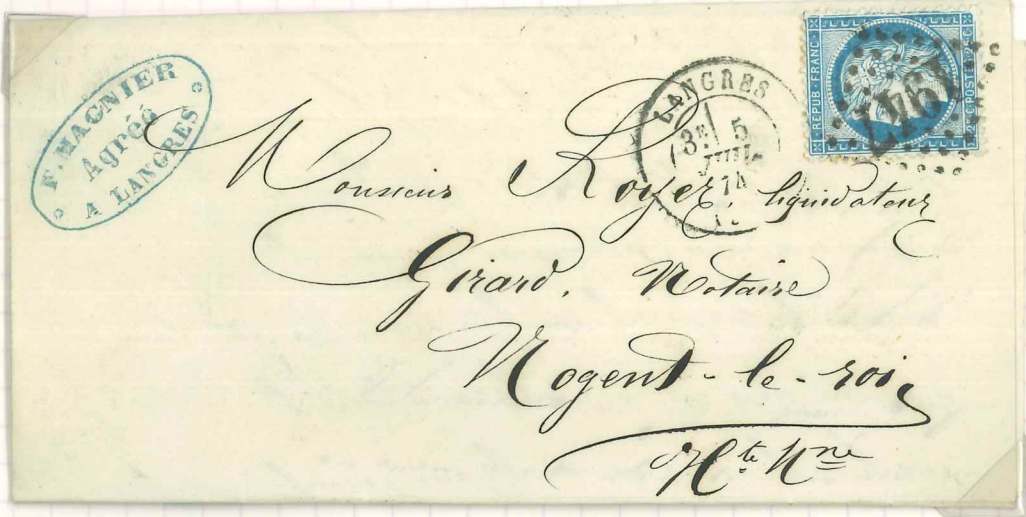 F. MAGNIER
Agréé
A LANGRES
LANGRES
3E
5
JUIL
74
REPUB · FRANC ·
25 C POSTE 25 C
Monsieur Royer, liquidateur
Girard, Notaire
Nogent-le-roi,
Hte Mne